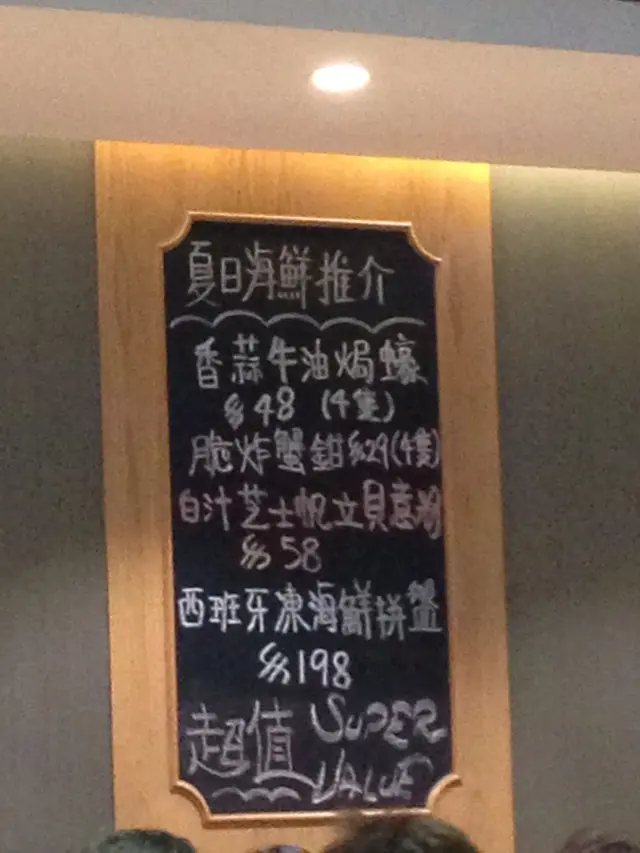 夏日海鮮推介
香蒜牛油焗蠔
$48 (4隻)
脆炸蟹鉗$29(4隻)
白汁芝士帆立貝意粉
$58
西班牙凍海鮮拼盤
$198
超值 SUPER
VALUE